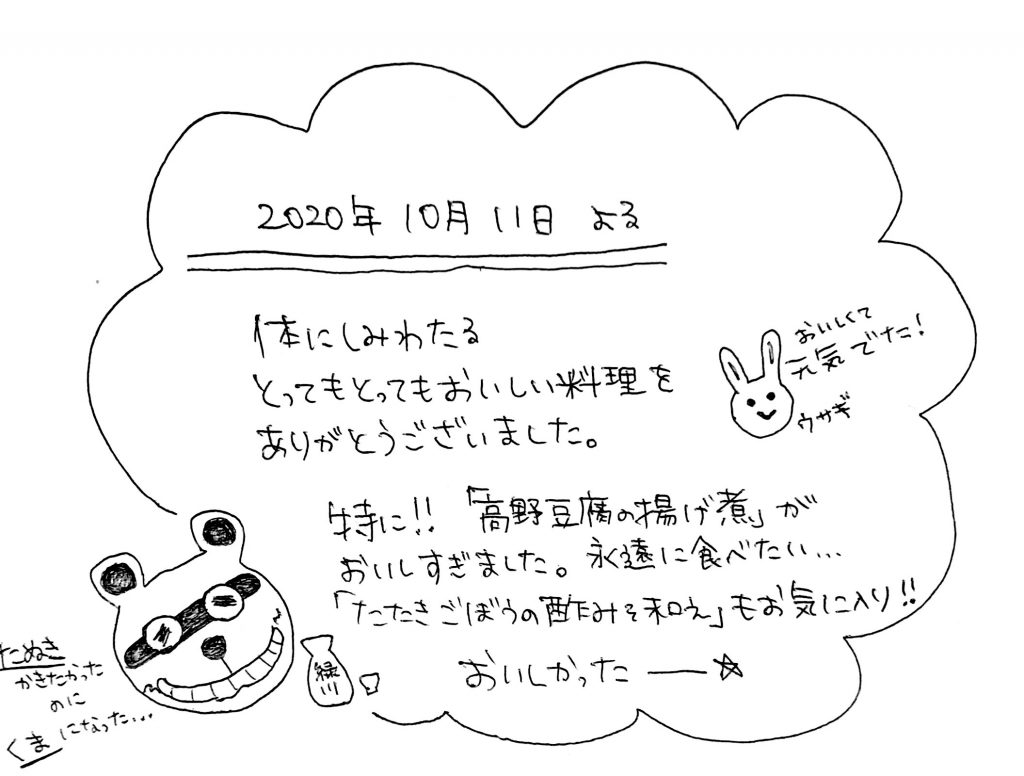 2020年 10月 11日 よる
体にしみわたる
とってもとってもおいしい料理を
ありがとうございました。
おいしくて
元気でた!
ウサギ
特に!!「高野豆腐の揚げ煮」が
おいしすぎました。永遠に食べたい...
「たたきごぼうの酢みそ和え」もお気に入り!!
おいしかったー☆
たぬき
かきたかった
のに
くまになった...
緑川